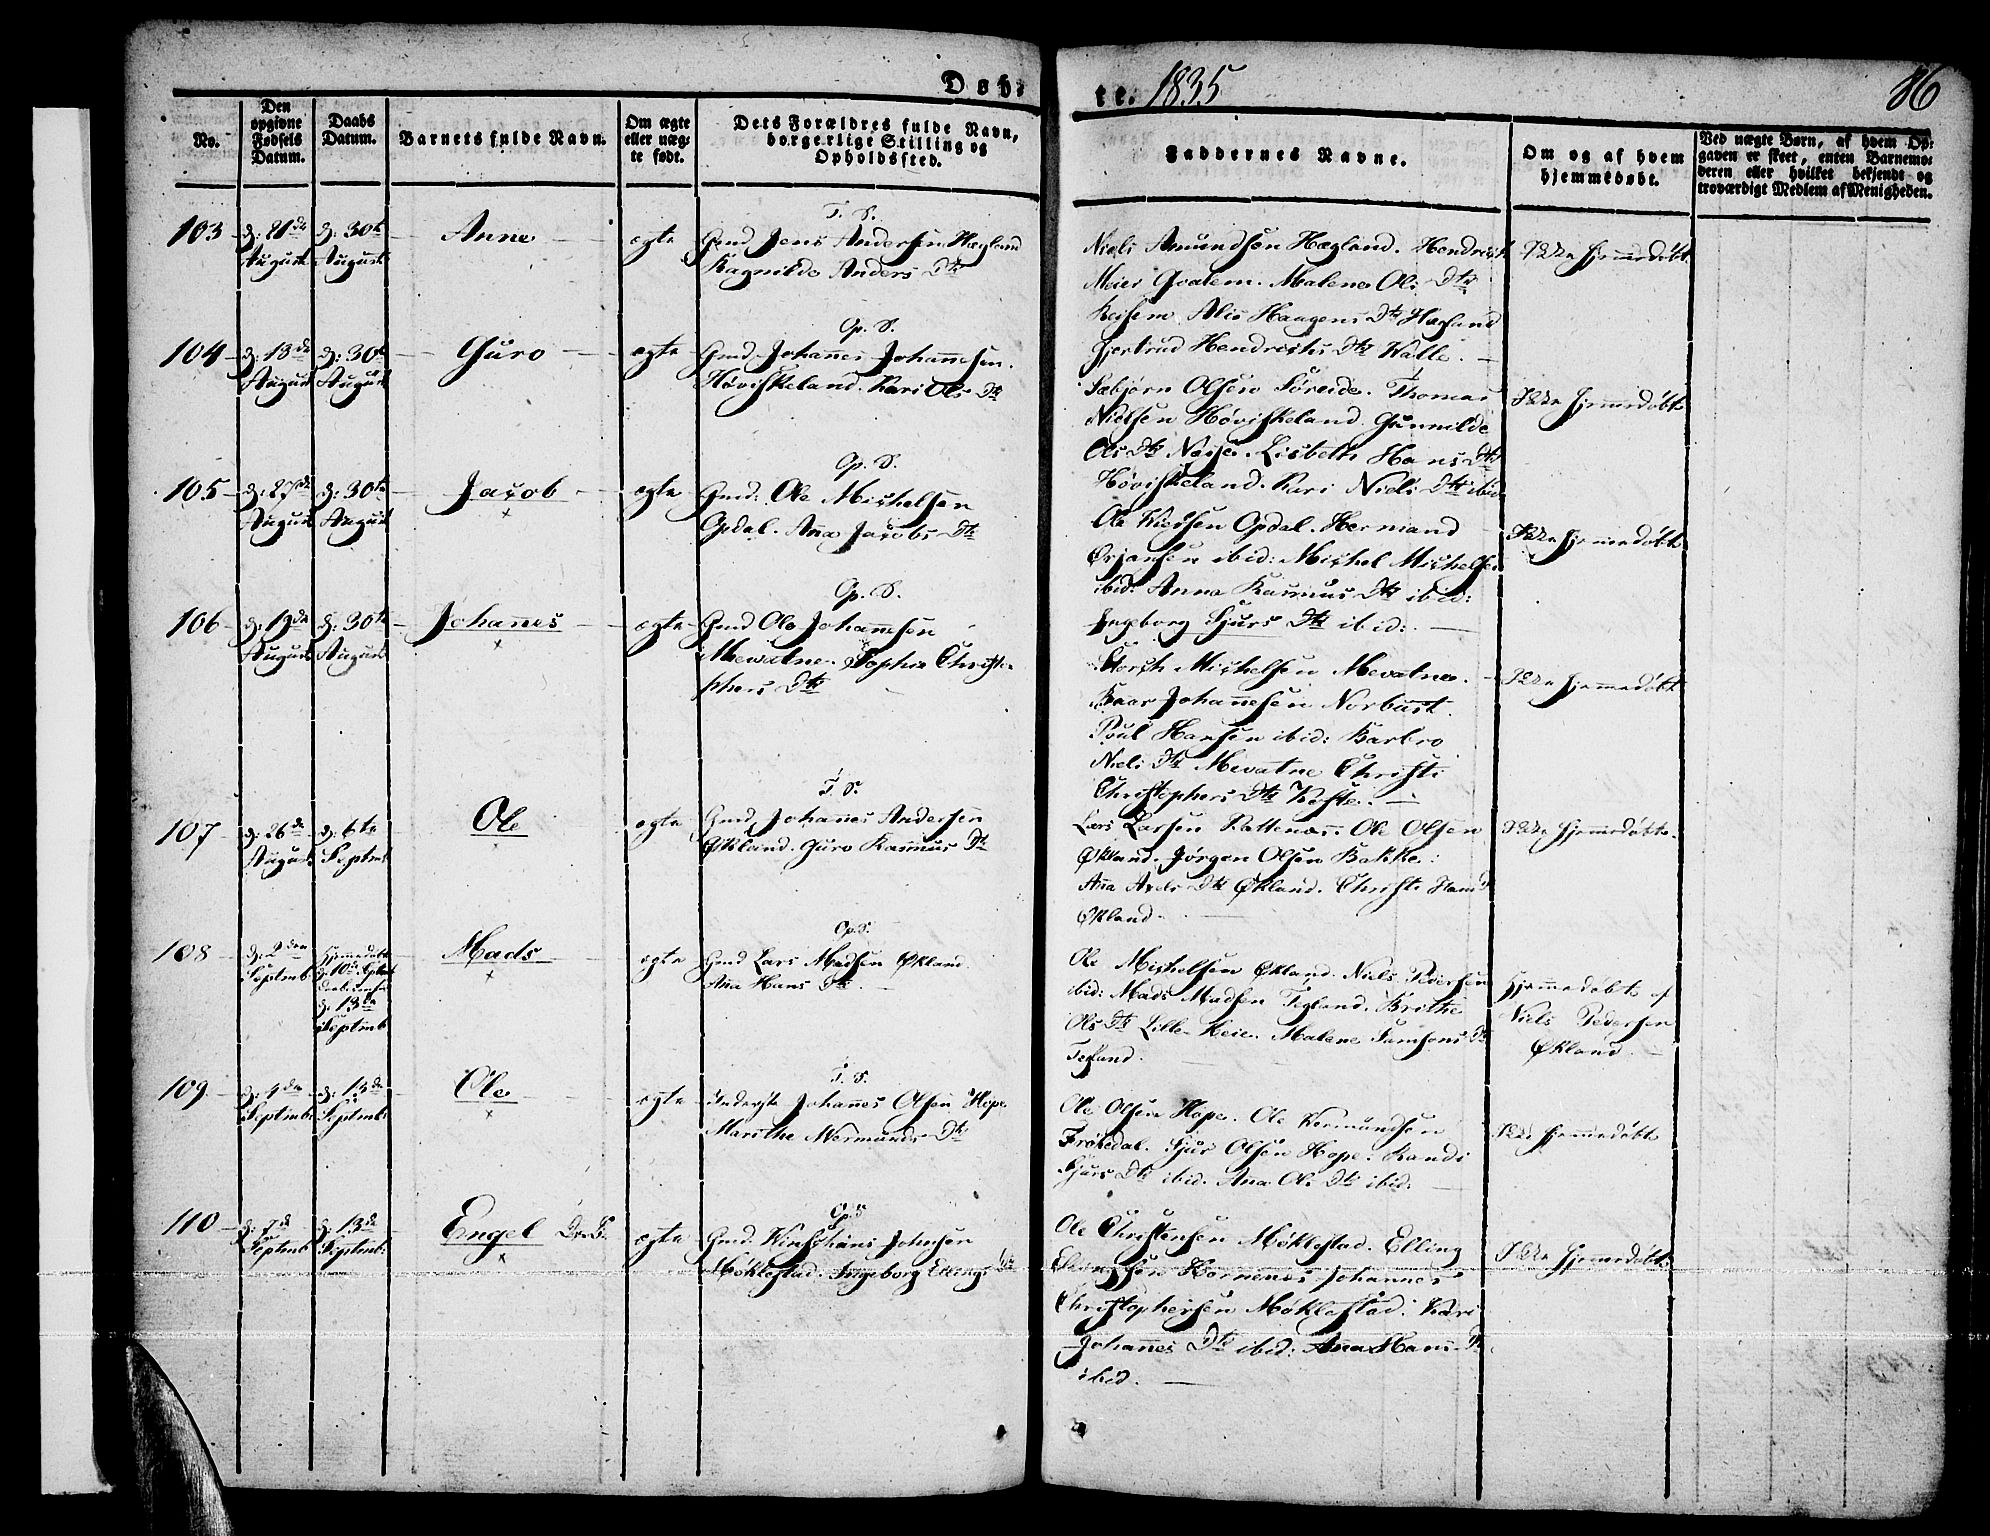 Døb-
te. 1835
86
No.
Den
opgivne
Fødsels
Datum.
Daabs
Datum.
Barnets fulde Navn.
Om ægte
eller uæg-
te født.
Dets Forældres fulde Navn,
borgerlige Stilling og
Opholdssted.
Faddernes Navne.
Om og af hvem
hjemmedøbt.
Ved uægte Børn, af hvem Op-
gaven er skeet, enten Barnemo-
deren eller hvilket bekjendt og
troværdigt Medlem af Menigheden.
103
d: 21de
August
d: 30te
August
Anne
ægte
T. S.
Gmd Jens Andersen Hægland
Ragnilde Anders Dtr
Niels Amundsen Hægland. Hendrich
Meier Qvalem. Malene Ols Dtr
Alis Haagens Dtr Hægland
Gjertrud Hendrichs Dtr Walle.
Ikke hjemmedøbt
104
d: 13de
August
d: 30te
August
Guro
ægte
Op. S.
Gmd. Johannes Johannesen
Høviskeland. Kari Ols Dtr
Sæbjørn Olsen Søreide. Thomas
Nielsen Høviskeland. Gunnilde
Ols Dtr Lisbeth Hans Dtr
Høviskeland. Kari Niels Dtr ibid
Ikke hjemmedøbt
105
d: 27de
August
d: 30te
August
Jacob
ægte
Op. S.
Gmd: Ole Michelsen
Opdal. Anna Jacobs Dtr
Ole Opdal. Hermand
Ørjansen ibid: Michel Michelsen
ibid: Anna Rasmus Dtr ibid:
Ingborg Sjurs Dtr ibid:
Ikke hjemmedøbt
106
d: 19de
August
d: 30te
August
Johanes
ægte
Op. S.
Gmd Ole Johannesen
Mevatne. Sophie Christo-
phers Dtr
Michelsen Mevatne.
Baar Johannesen Norbust.
Poul Hansen ibid: Barbro
Niels Dtr Mevatne Christi
Christophers Dtr
Ikke hjemmedøbt
107
d: 26de
August
d: 6te
Septmb:
Ole
ægte
T. S.
Gmd. Johanes Andersen
Økland. Guro Rasmus Dtr
Lars Larsen Rattenæs. Ole Olsen
Økland. Jørgen Olsen Bakke:
Ana Dtr Økland. Christi
Økland
Ikke hjemmedøbt.
108
d: 2den
Septmb:
Hjemmedøbt
d: 10de Septmb
d: 13de
Septmb:
Mads
ægte
Op. S.
Gmd Lars Madsen Økland
Ana Hans Dtr
Ole Michelsen Økland. Niels Pedersen
ibid: Mads Madsen Tegland. Brithe
Ols Dtr Lille Heie. Malene Samsons Dtr
Tegland.
Hjemmedøbt af
Niels Pedersen
Økland.
109
d: 4de
Septmb:
d: 13de
Septmb:
Ole
ægte
T. S.
Inderste Johannes Olsen Hope
Marithe Wermunds Dtr
Ole Olsen Hope. Ole Vermundsen
Frøkedal. Sjur Olsen Hope: Randi
Sjurs Dtr ibid. Ana Ols Dtr ibid:
Ikke hjemmedøbt
110
d: 7de
Septmb
d: 13de
Septmb:
Engel
ægte
Op. S
Gmd. Johnsen
Møklestad. Ingeborg Ellings Dtr
Ole Christensen Møklestad. Elling
Ellingsen Hornenes Johannes
Christophersen Møklestad. Kari
Johannes Dtr ibid: Ana Hans Dtr
ibid.
Ikke hjemmedøbt